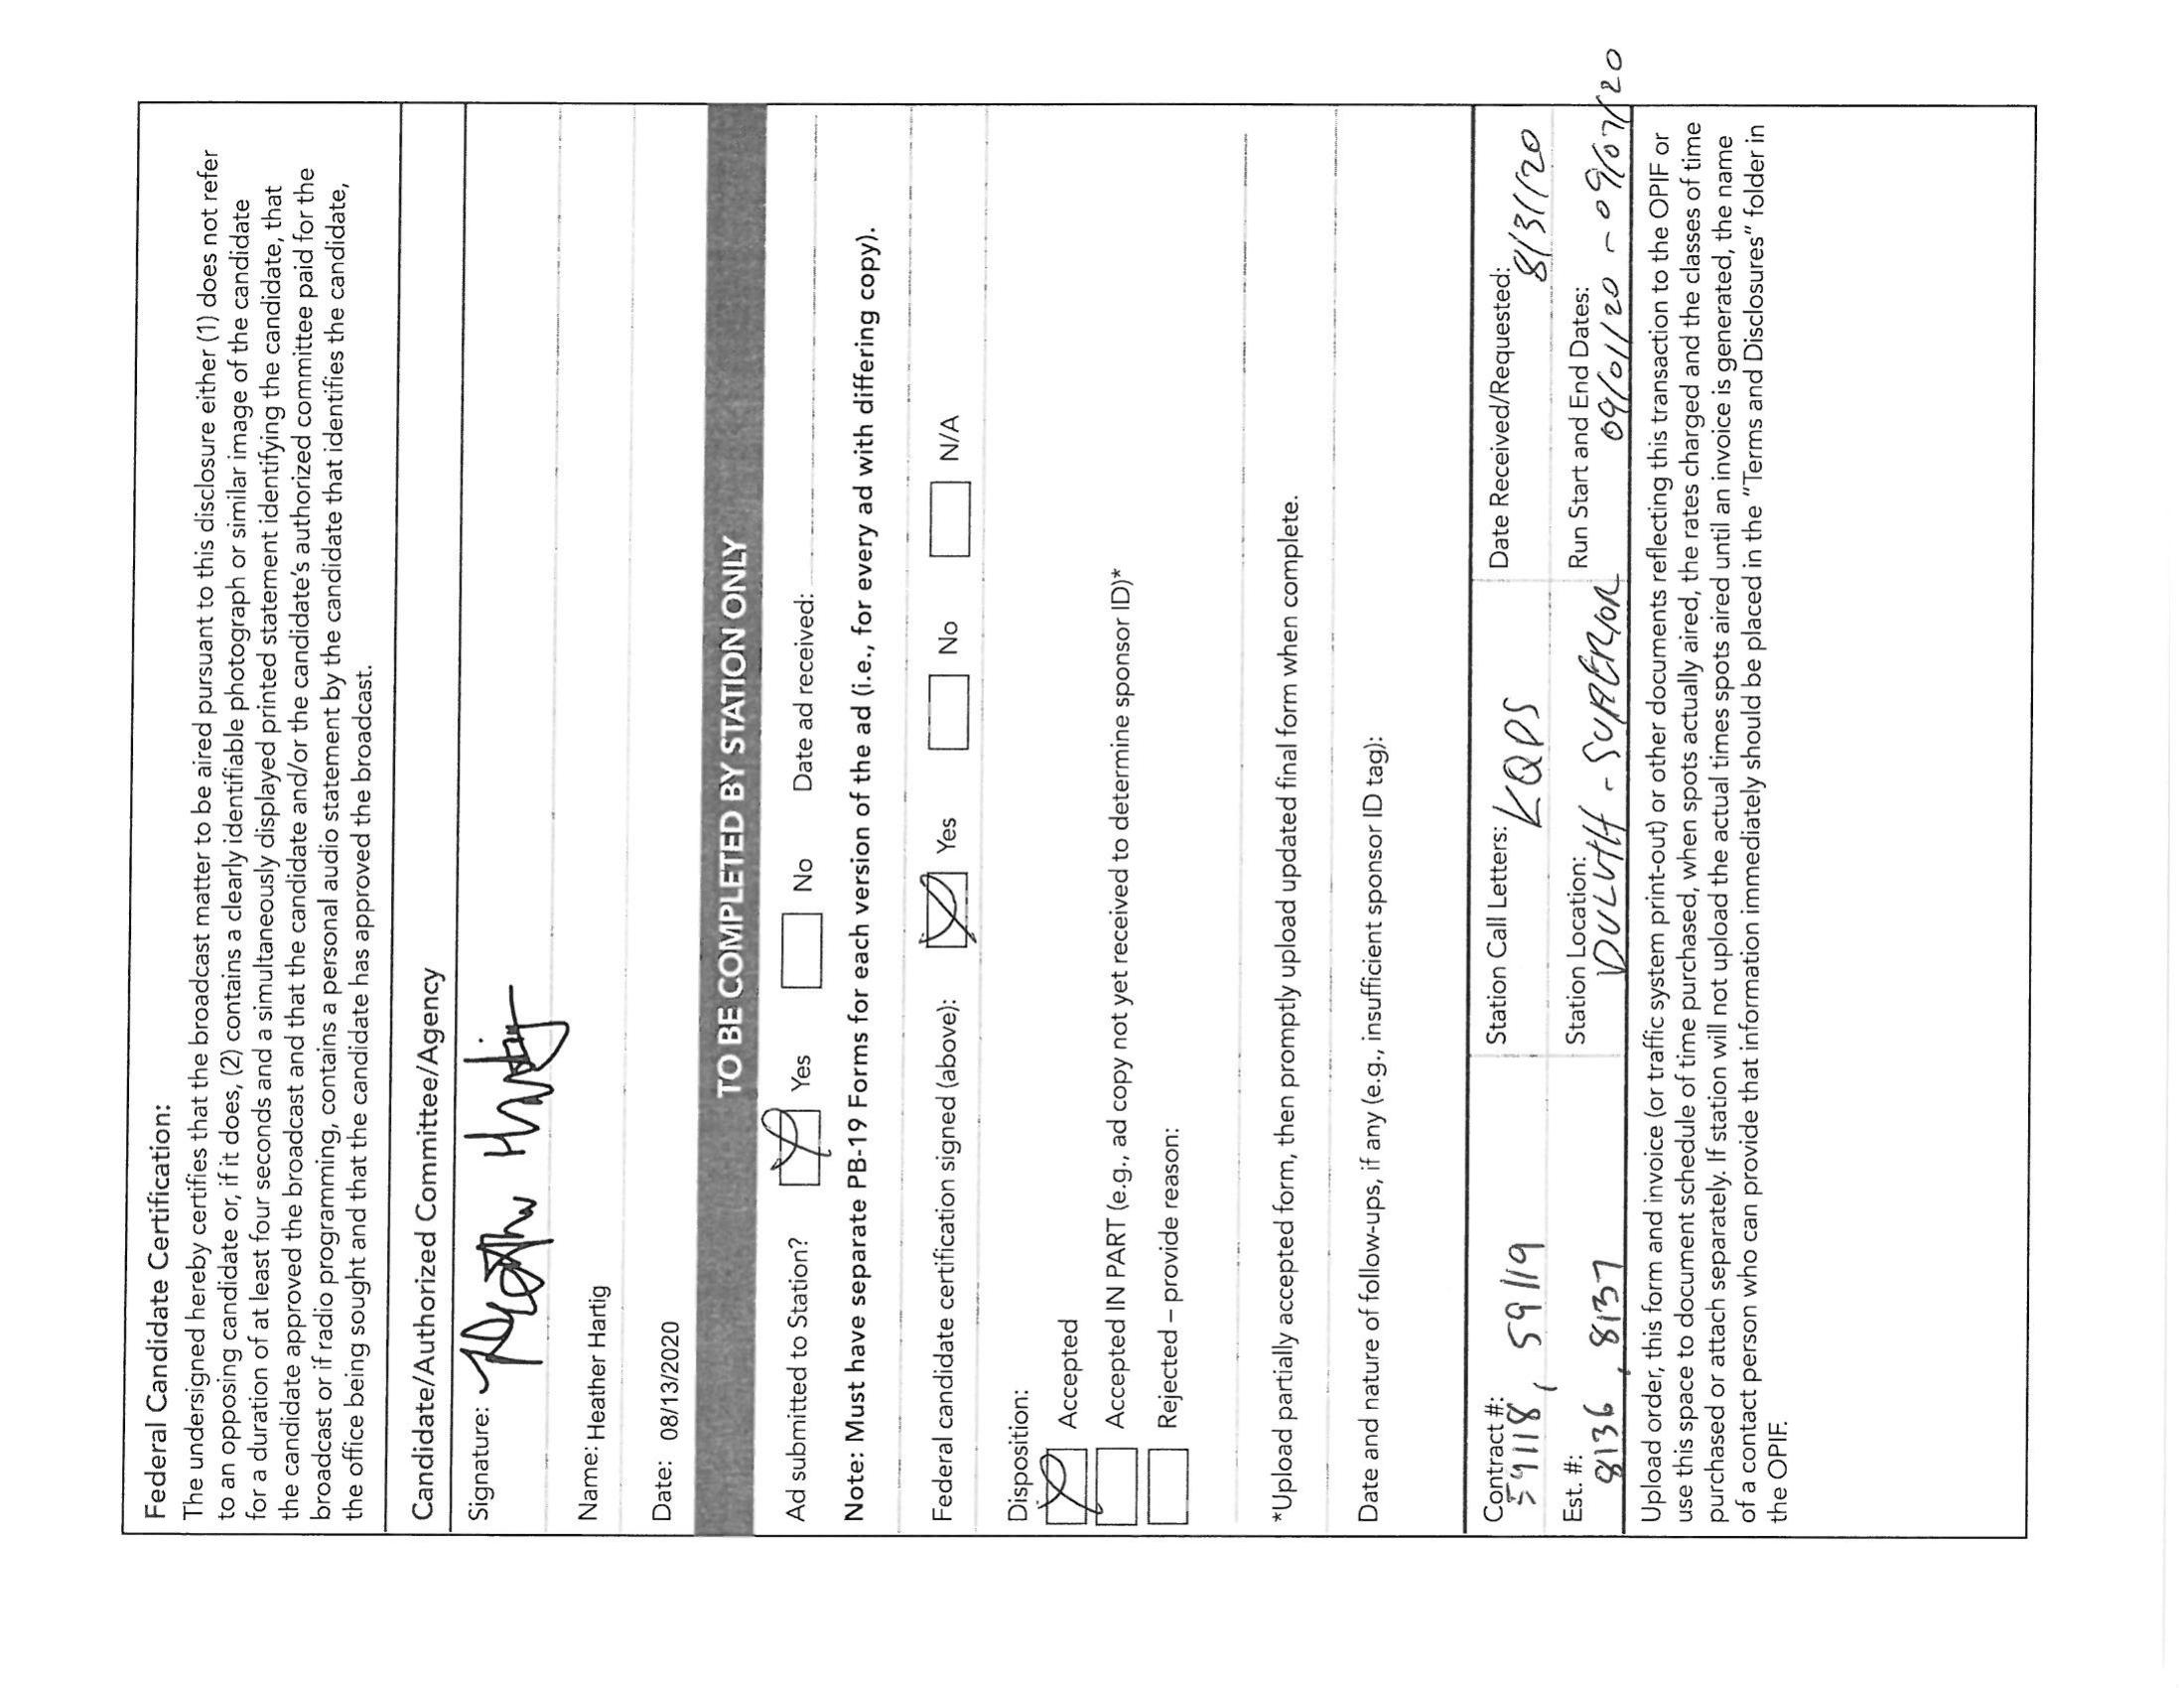 Federal Candidate Certification:
The undersigned hereby certifies that the broadcast matter to be aired pursuant to this disclosure either (1) does not refer
to an opposing candidate or, if it does, (2) contains a clearly identifiable photograph or similar image of the candidate
for a duration of at least four seconds and a simultaneously displayed printed statement identifying the candidate, that
the candidate approved the broadcast and that the candidate and/or the candidate's authorized committee paid for the
broadcast or if radio programming, contains a personal audio statement by the candidate that identifies the candidate,
the office being sought and that the candidate has approved the broadcast.
Candidate/Authorized Committee/Agency
Signature: Heather Hartig
Name: Heather Hartig
Date: 08/13/2020
TO BE COMPLETED BY STATION ONLY
Ad submitted to Station? Yes No Date ad received:
Note: Must have separate PB-19 Forms for each version of the ad (i.e., for every ad with differing copy).
Federal candidate certification signed (above): Yes No N/A
Disposition:
Accepted
Accepted IN PART (e.g., ad copy not yet received to determine sponsor ID)*
Rejected – provide reason:
*Upload partially accepted form, then promptly upload updated final form when complete.
Date and nature of follow-ups, if any (e.g., insufficient sponsor ID tag):
Contract #: Station Call Letters: Date Received/Requested:
59118, 59119 KQDS 8/31/20
Est. #: Station Location: Run Start and End Dates:
8136, 8137 DULUTH - SUPERIOR 09/01/20 - 09/07/20
Upload order, this form and invoice (or traffic system print-out) or other documents reflecting this transaction to the OPIF or
use this space to document schedule of time purchased, when spots actually aired, the rates charged and the classes of time
purchased or attach separately. If station will not upload the actual times spots aired until an invoice is generated, the name
of a contact person who can provide that information immediately should be placed in the "Terms and Disclosures" folder in
the OPIF.